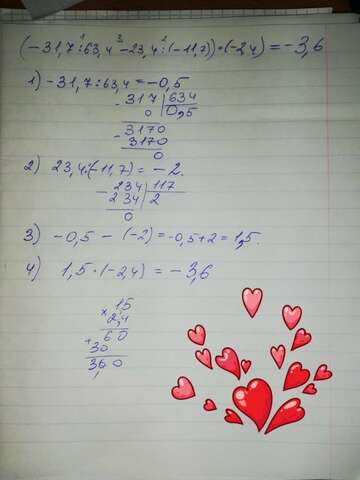 (-31,7 : 63,4 - 23,4 : (-11,7)) · (-2,4) = -3,6
1 3 2
1) -31,7 : 63,4 = -0,5
- 317 | 634
0 | 0,5
3170
- 3170
0
2) 23,4 : (-11,7) = -2.
- 234 | 117
234 | 2
0
3) -0,5 - (-2) = -0,5 + 2 = 1,5.
4) 1,5 · (-2,4) = -3,6
15
× 2,4
60
+ 30
3,60